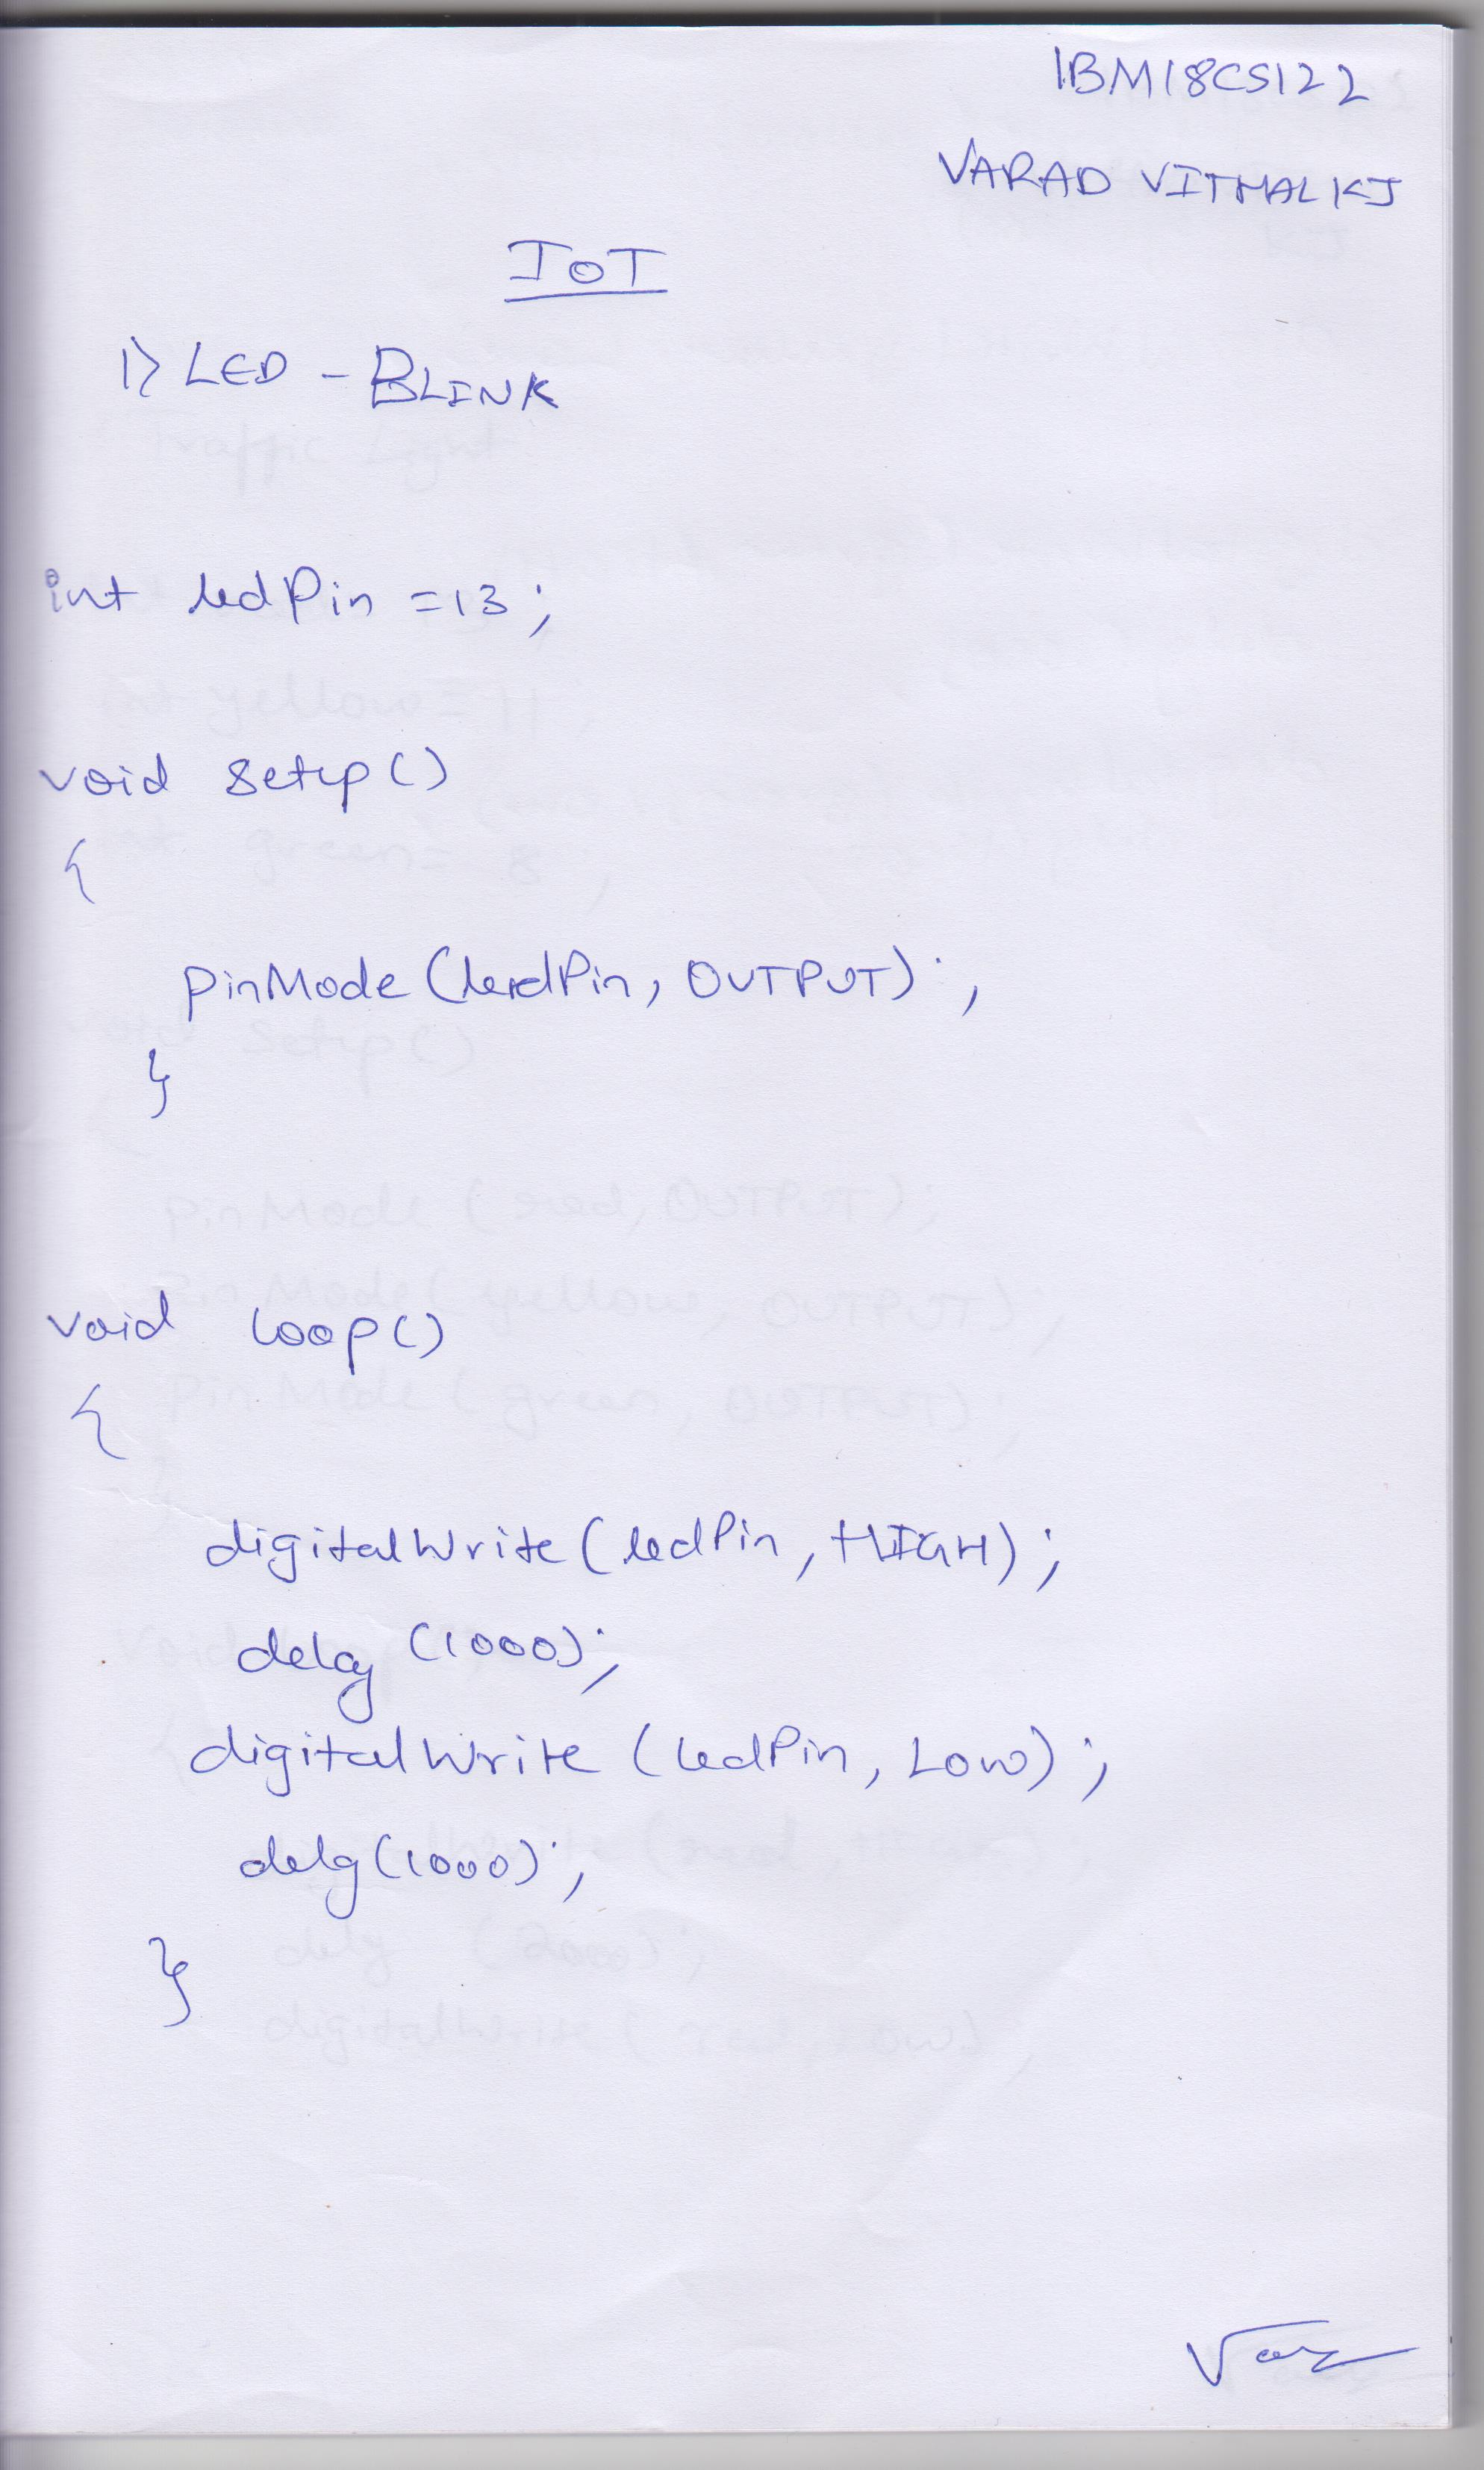 1BM18CS122
VARAD VITHALKJ
IOT
1) LED - BLINK
int ledPin =13;
void setup()
{
pinMode (ledPin, OUTPUT);
}
void loop()
{
digitalWrite (ledPin, HIGH);
delay (1000);
digitalWrite (ledPin, LOW);
delay(1000);
}